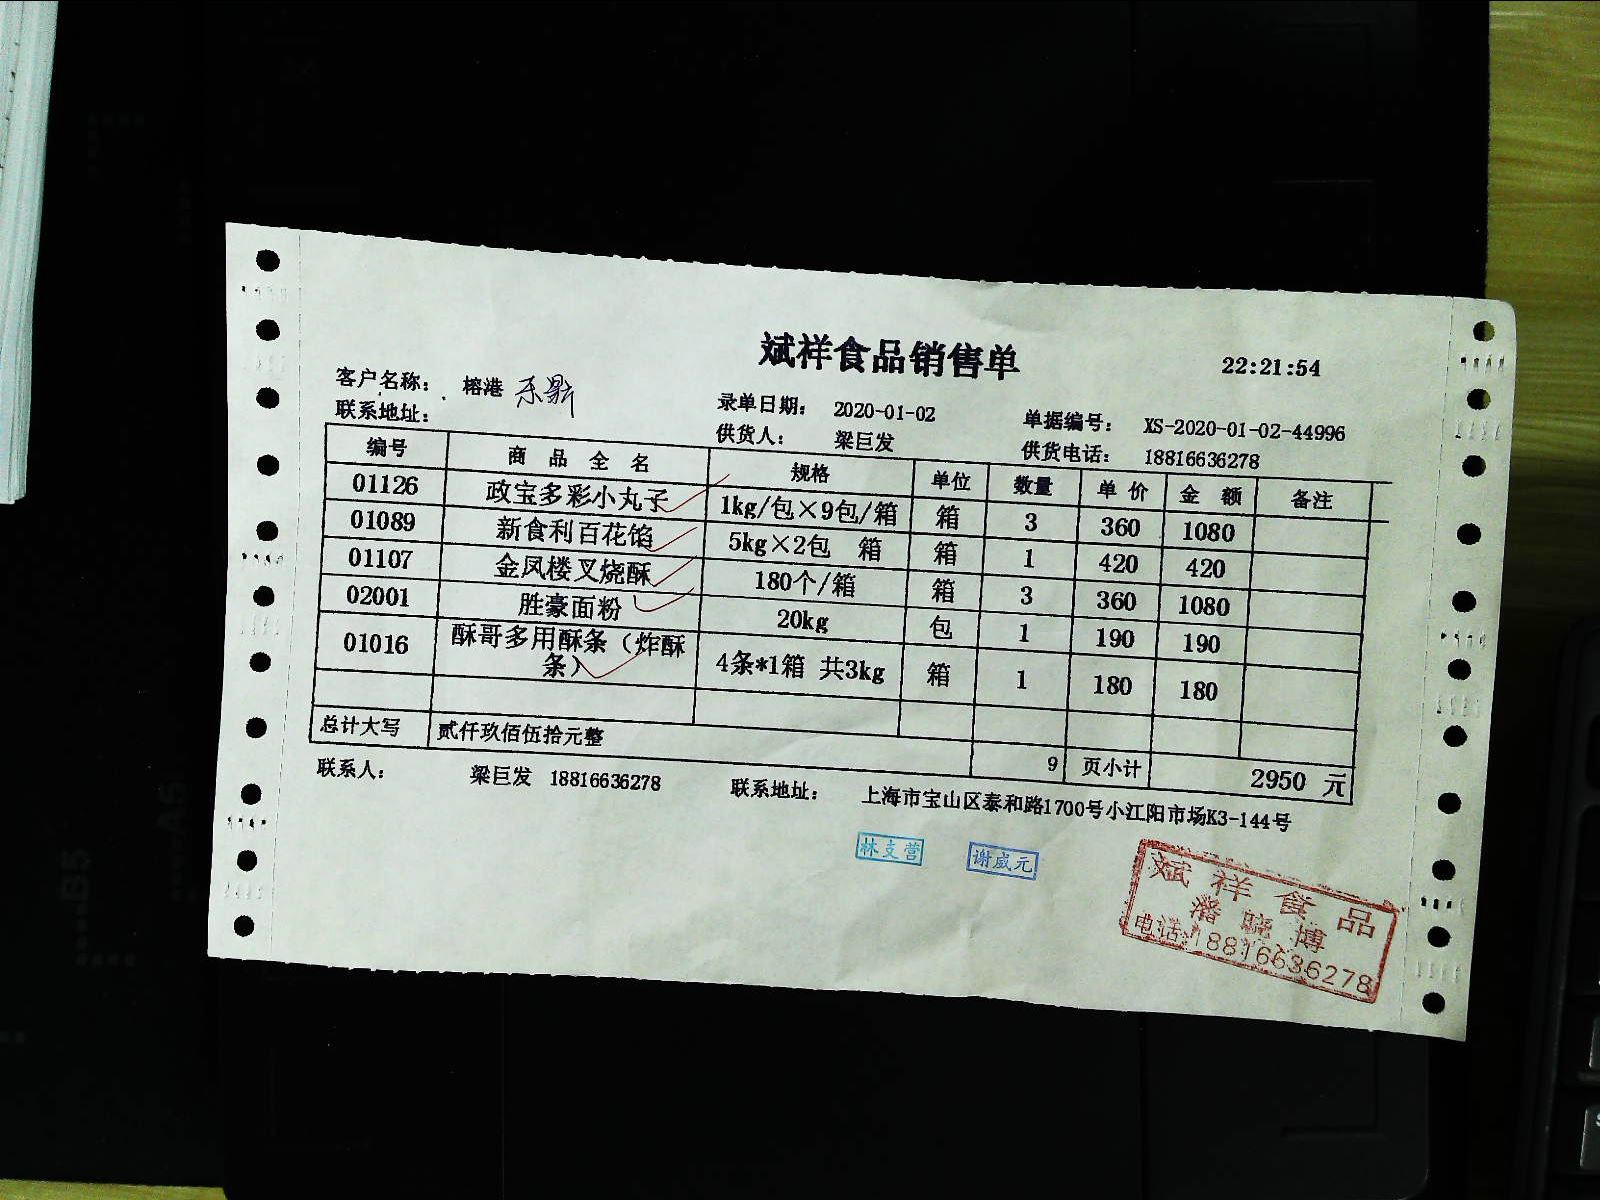 斌祥食品销售单 22:21:54
客户名称： 榕港 录单日期： 2020-01-02 单据编号： XS-2020-01-02-44996
联系地址： 供货人： 梁巨发 供货电话： 18816636278
编号 商品全名 规格 单位 数量 单价 金额 备注
01126 政宝多彩小丸子 1kg/包×9包/箱 箱 3 360 1080
01089 新食利百花馅 5kg×2包 箱 箱 1 420 420
01107 金凤楼叉烧酥 180个/箱 箱 3 360 1080
02001 胜豪面粉 20kg 包 1 190 190
01016 酥哥多用酥条（炸酥条） 4条*1箱 共3kg 箱 1 180 180
总计大写 贰仟玖佰伍拾元整 9 页小计 2950 元
联系人： 梁巨发 18816636278 联系地址： 上海市宝山区泰和路1700号小江阳市场K3-144号
林支营 谢威元
斌祥食品
潞晓博
电话:18816636278
B5
A5